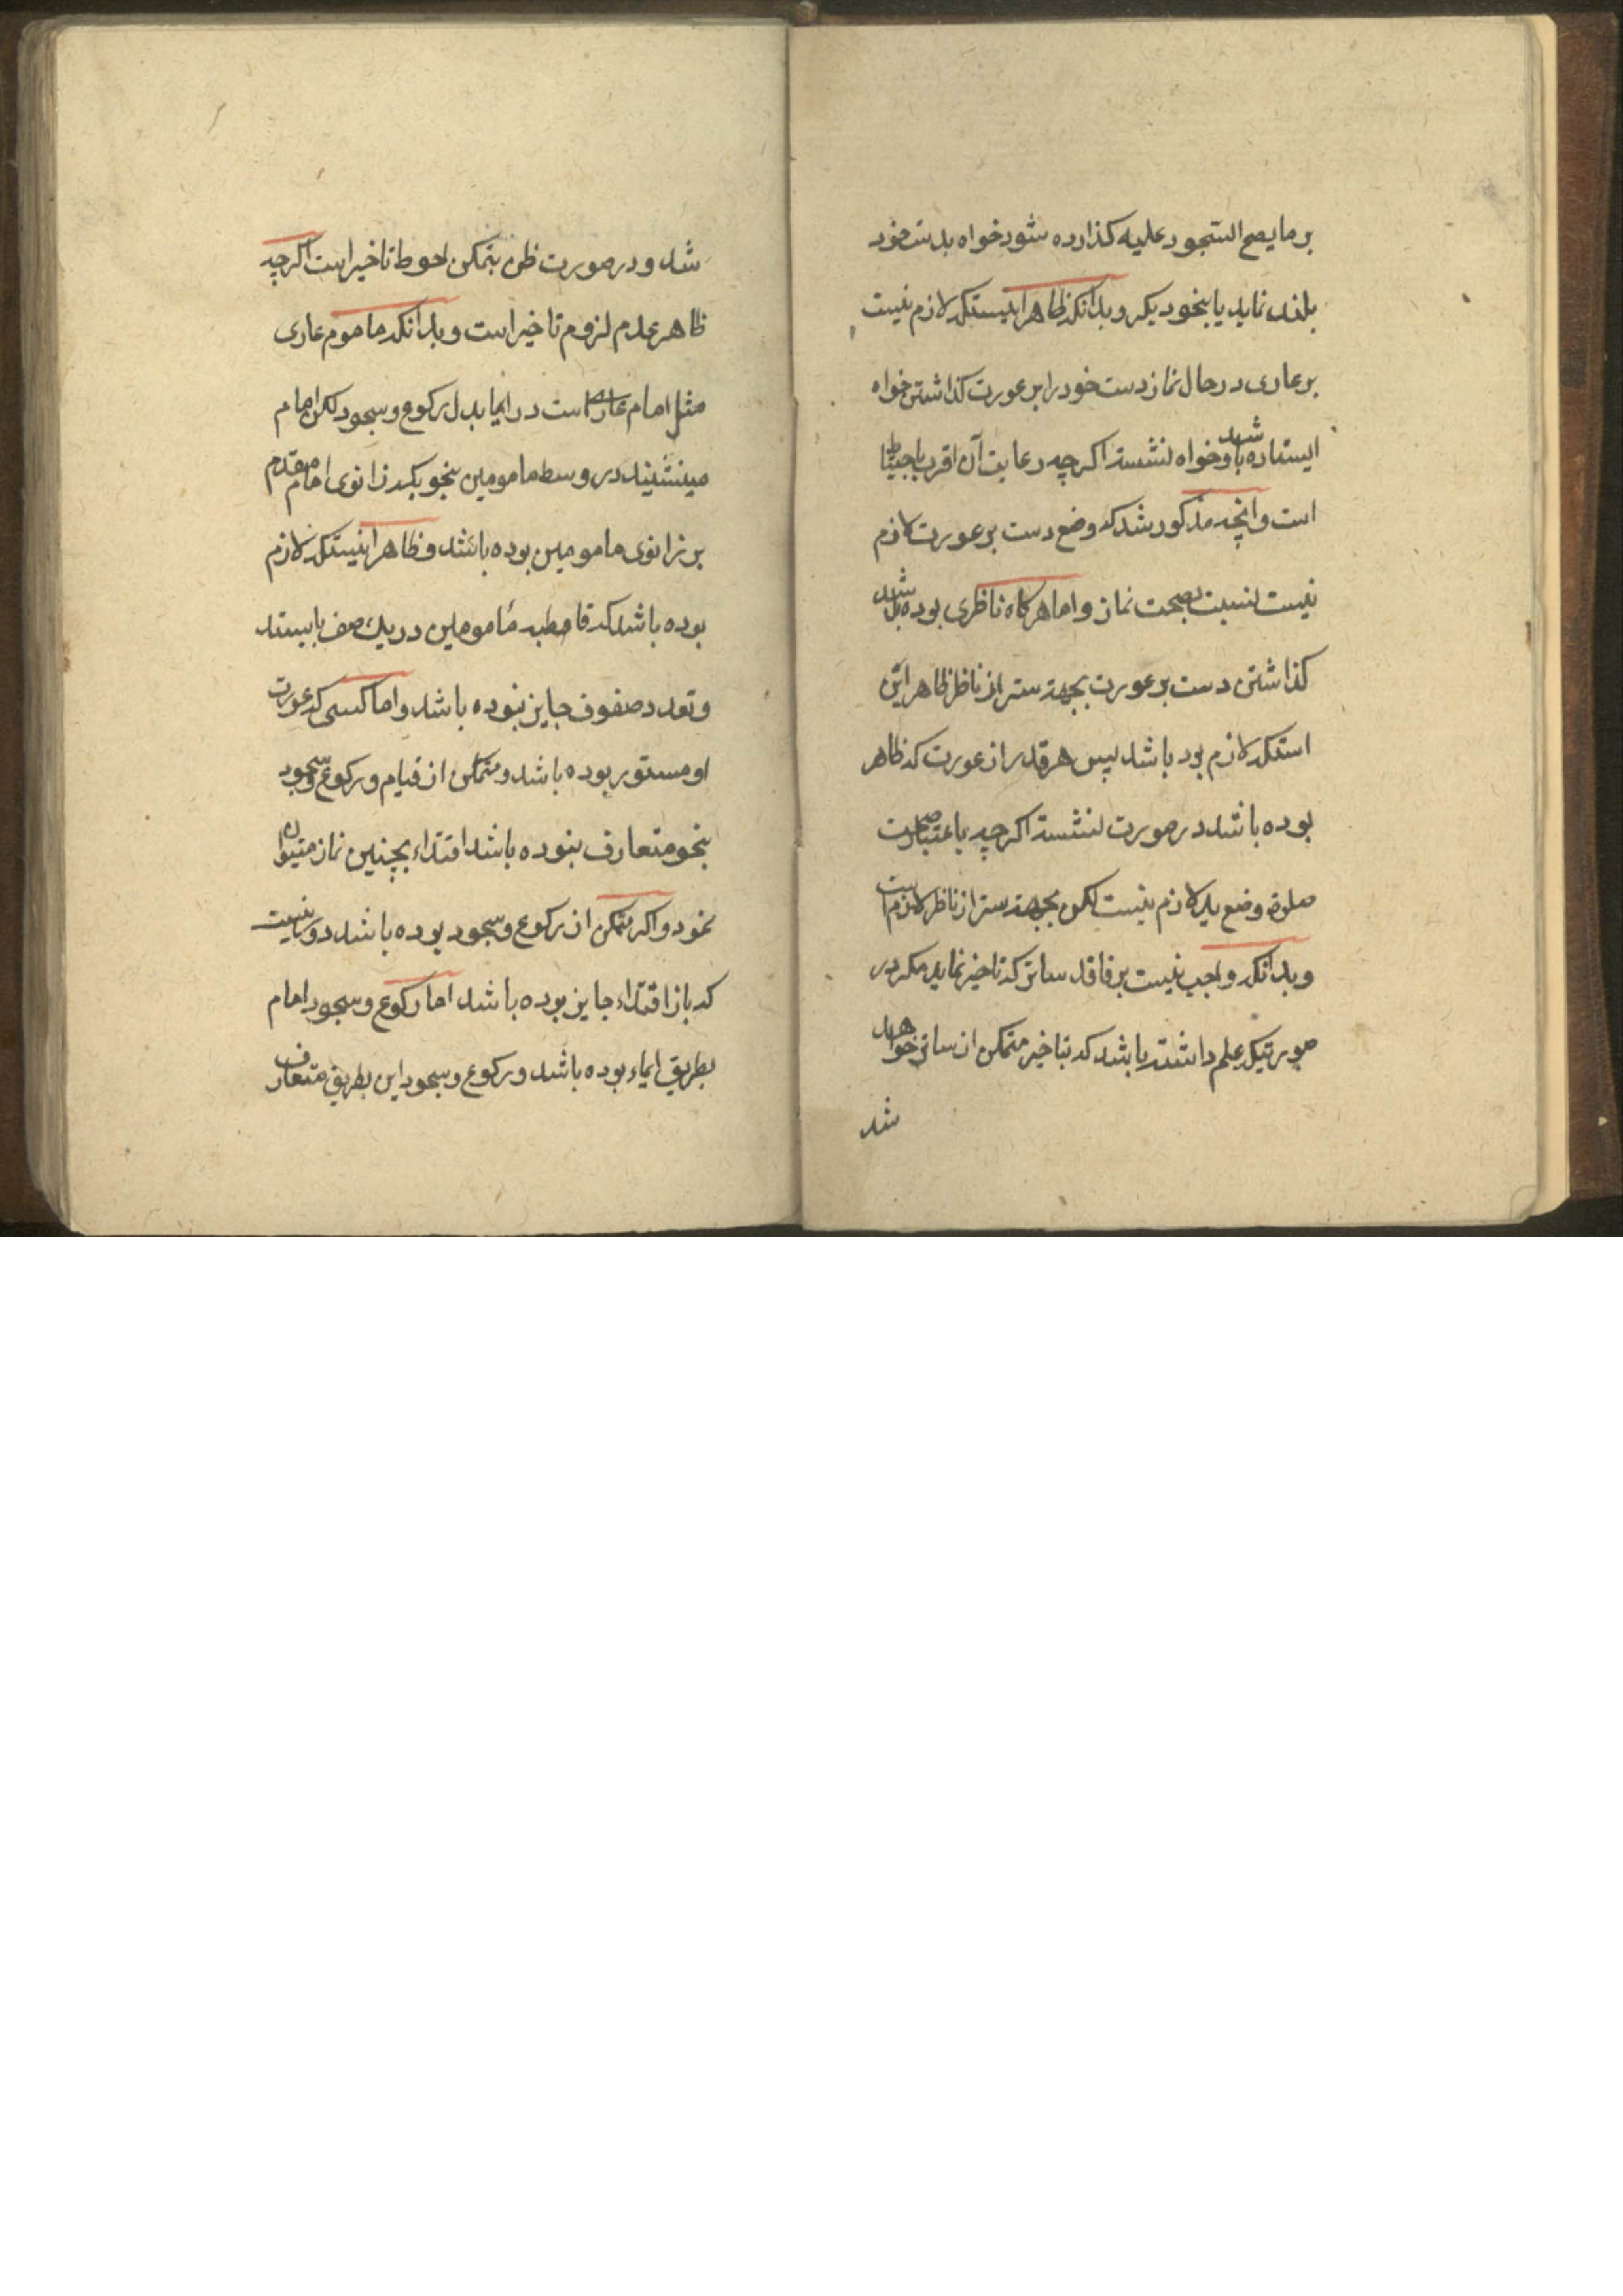 بر ما یصح السّجود علیه کذارده شود خواه بدست خود
بلند نماید یا بنحو دیکر و بدانکه ظاهر اینستکه لازم نیست
بر عاری در حال نماز دست خود را بر عورت کذاشتن خواه
ایستاده باشد و خواه نشسته اکرچه رعایت آن اقرب باحتیاط
است و آنچه مذکور شد که وضع دست بر عورت لازم
نیست نسبت بصحت نماز و اما هرکاه ناظری بوده باشد
کذاشتن دست بر عورت بجهة ستر از ناظر ظاهر این
استکه لازم بود باشد پس هر قدر از عورت که ظاهر
بوده باشد در صورت نشسته اکرچه باعتبار صحت
صلوة وضع ید لازم نیست لکن بجهة ستر از ناظر لازم است
و بدانکه واجب نیست بر فاقد ساتر که تاخیر نماید مکر در
صورتیکه علم داشته باشد که بتاخیر متمکن از ساتر خواهد
شد
شد و در صورت ظن بتمکن احوط تاخیر است اکرچه
ظاهر عدم لزوم تاخیر است و بدانکه ماموم عاری
مثل امام عاری است در ایما بدل رکوع و سجود لکن امام
مینشیند در وسط مامومین بنحویکه زانوی امام مقدم
بر زانوی مامومین بوده باشد و ظاهر اینستکه لازم
بوده باشد که قاطبه مامومین در یک صف بایستند
و تعدد صفوف جایز نبوده باشد و اما کسی که عورت
او مستور بوده باشد و متمکن از قیام و رکوع و سجود
بنحو متعارف بنوده باشد اقتداء بچنین نماز میتوان
نمود و اکر متمکن از رکوع و سجود بوده باشد دور نیست
که باز اقتداء جایز بوده باشد اما رکوع و سجود امام
بطریق ایماء بوده باشد و رکوع و سجود این بطریق متعارف